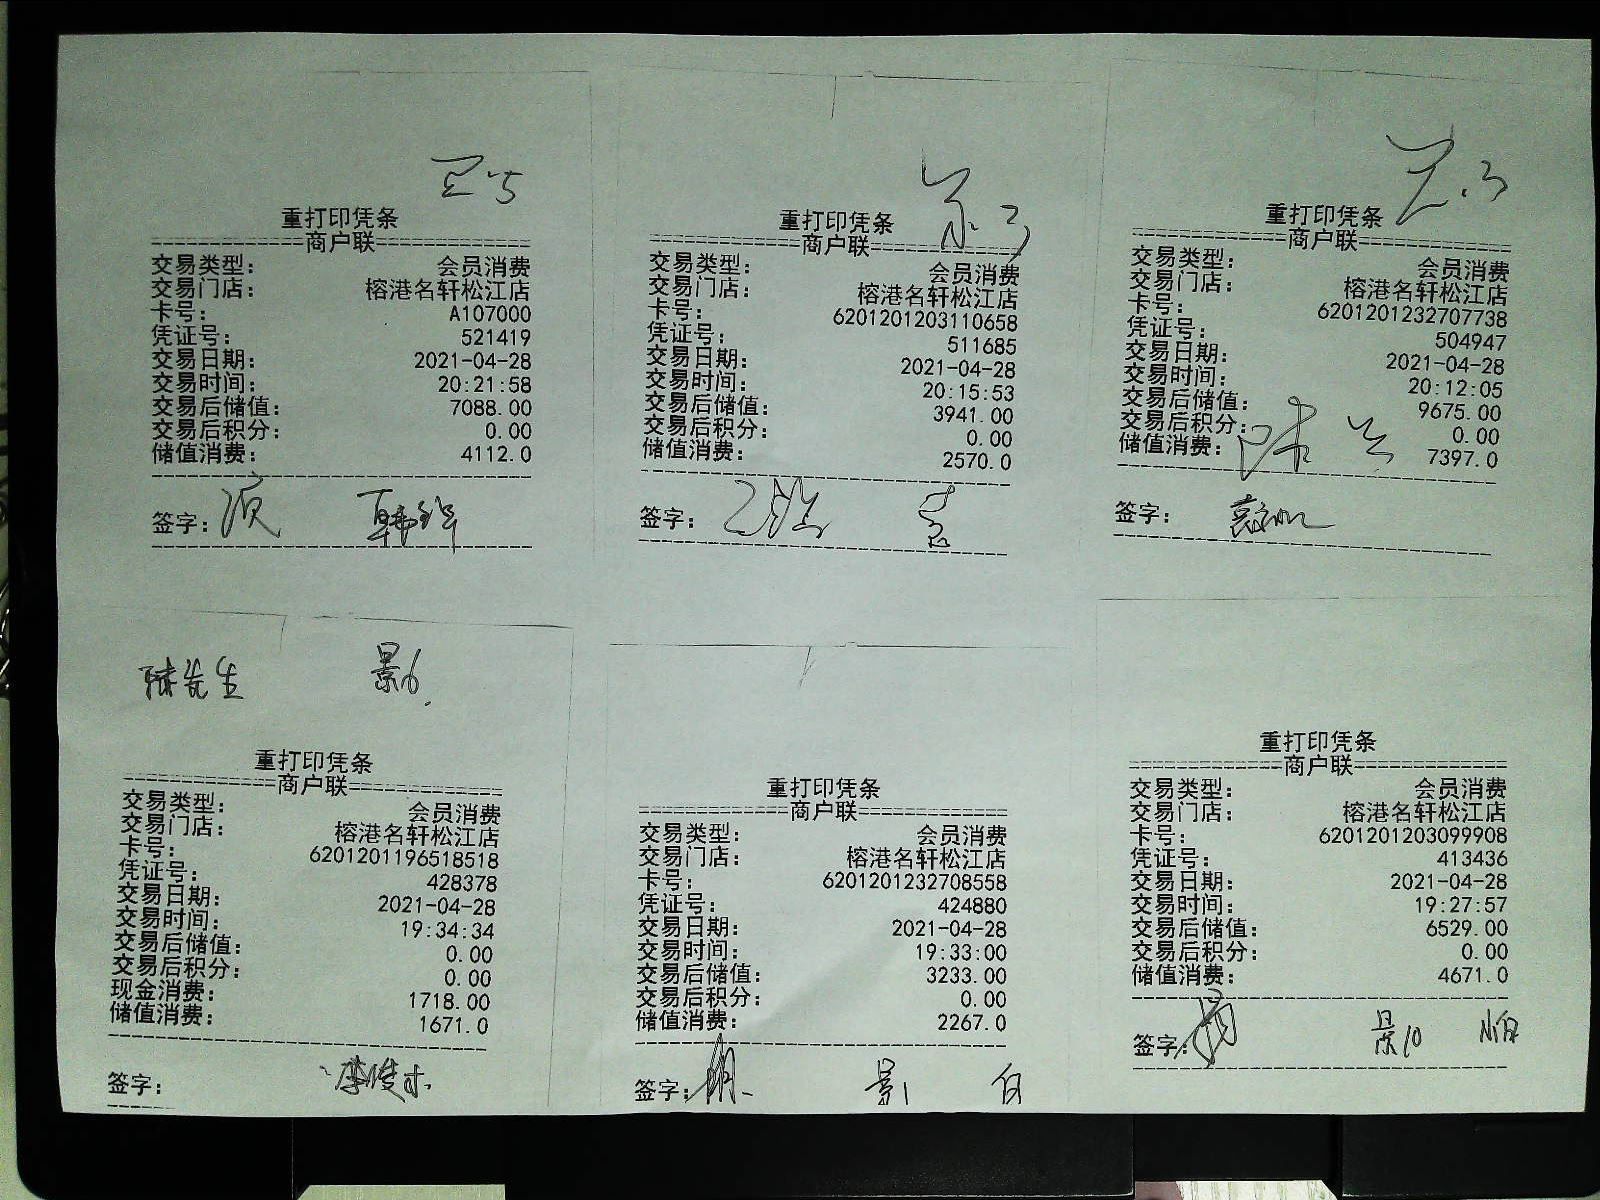 重打印凭条
商户联
交易类型: 会员消费
交易门店: 榕港名轩松江店
卡号: A107000
凭证号: 521419
交易日期: 2021-04-28
交易时间: 20:21:58
交易后储值: 7088.00
交易后积分: 0.00
储值消费: 4112.0
签字:
重打印凭条
商户联
交易类型: 会员消费
交易门店: 榕港名轩松江店
卡号: 6201201203110658
凭证号: 511685
交易日期: 2021-04-28
交易时间: 20:15:53
交易后储值: 3941.00
交易后积分: 0.00
储值消费: 2570.0
签字:
重打印凭条
商户联
交易类型: 会员消费
交易门店: 榕港名轩松江店
卡号: 6201201232707738
凭证号: 504947
交易日期: 2021-04-28
交易时间: 20:12:05
交易后储值: 9675.00
交易后积分: 0.00
储值消费: 7397.0
签字:
陆先生 景6
重打印凭条
商户联
交易类型: 会员消费
交易门店: 榕港名轩松江店
卡号: 6201201196518518
凭证号: 428378
交易日期: 2021-04-28
交易时间: 19:34:34
交易后储值: 0.00
交易后积分: 0.00
现金消费: 1718.00
储值消费: 1671.0
签字:
重打印凭条
商户联
交易类型: 会员消费
交易门店: 榕港名轩松江店
卡号: 6201201232708558
凭证号: 424880
交易日期: 2021-04-28
交易时间: 19:33:00
交易后储值: 3233.00
交易后积分: 0.00
储值消费: 2267.0
签字: 景1
重打印凭条
商户联
交易类型: 会员消费
交易门店: 榕港名轩松江店
卡号: 6201201203099908
凭证号: 413436
交易日期: 2021-04-28
交易时间: 19:27:57
交易后储值: 6529.00
交易后积分: 0.00
储值消费: 4671.0
签字: 景10